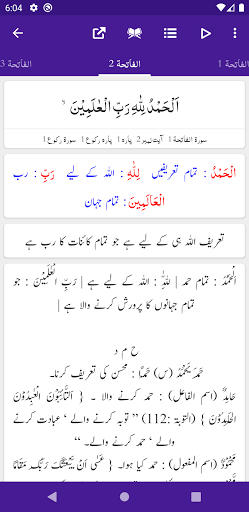 6:04
الفاتحة 3
الفاتحة 2
الفاتحة 1
اَلْحَمْدُ لِلّٰهِ رَبِّ الْعٰلَمِيْنَ
سورۃ الفاتحۃ 1 آیت نمبر 2 پارہ 1 پارہ رکوع 1 سورۃ رکوع 1
الْحَمْدُ : تمام تعریفیں لِلّٰهِ : اللہ کے لیے رَبِّ : رب
الْعَالَمِينَ : تمام جہان
تعریف اللہ ہی کے لیے ہے جو تمام کائنات کا رب ہے
اَلْحَمْدُ : تمام حمد | لِلّٰہِ : اللہ کے لیے ہے | رَبِّ الْعٰلَمِیْنَ : جو
تمام جہانوں کا پرورش کرنے والا ہے |
ح م د
حَمِدَ یَحْمَدُ (س) حَمْدًا : محسن کی تعریف کرنا۔
حَامِدٌ (اسم الفاعل) : حمد کرنے والا ۔ { اَلتَّآئِبُوْنَ الْعٰبِدُوْنَ
الْحٰمِدُوْنَ } (التوبۃ :112) ” توبہ کرنے والے ‘ عبادت کرنے
والے ‘ حمد کرنے والے۔ “
مَحْمُوْدٌ (اسم المفعول) : حمد کیا ہوا۔ { عَسٰٓی اَنْ یَّبْعَثَکَ رَبُّکَ مَقَامًا